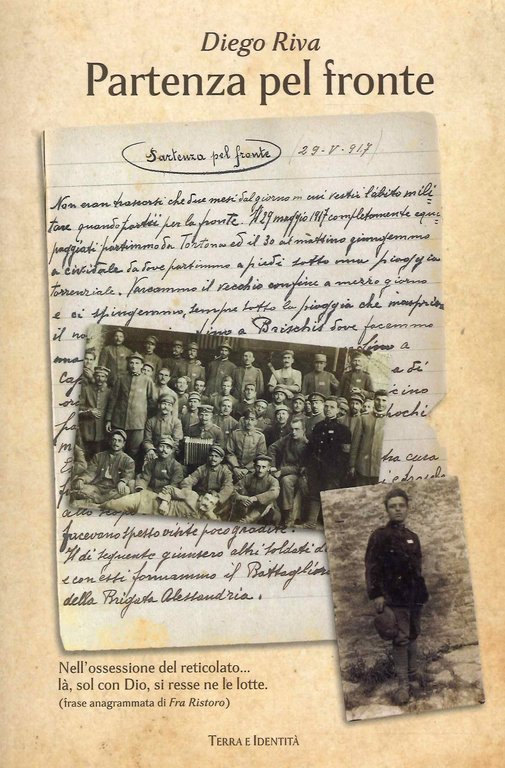 Diego Riva
Partenza pel fronte
Partenza pel fronte (29-V-917)
Non eran trascorsi che due mesi dal giorno in cui vestii l'abito mili-
tare quando partii per la fronte. Il 29 maggio 1917 completamente equi-
paggiati partimmo da Tortona ed il 30 al mattino giungemmo
a Cividale da dove partimmo a piedi sotto una pioggia
torrenziale. Varcammo il vecchio confine a mezzo giorno
e ci spingemmo, sempre sotto la pioggia che inaspriva
il no fino a Brischis dove facemmo
una a
Cap a di
cicino
pochi
tra cura
allo scopo
facevano spesso visite poco gradite.
Il dì seguente giunsero altri soldati d
e con essi formammo il Battaglion
della Brigata Alessandria.
Nell'ossessione del reticolato...
là, sol con Dio, si resse ne le lotte.
(frase anagrammata di Fra Ristoro)
Terra e Identità